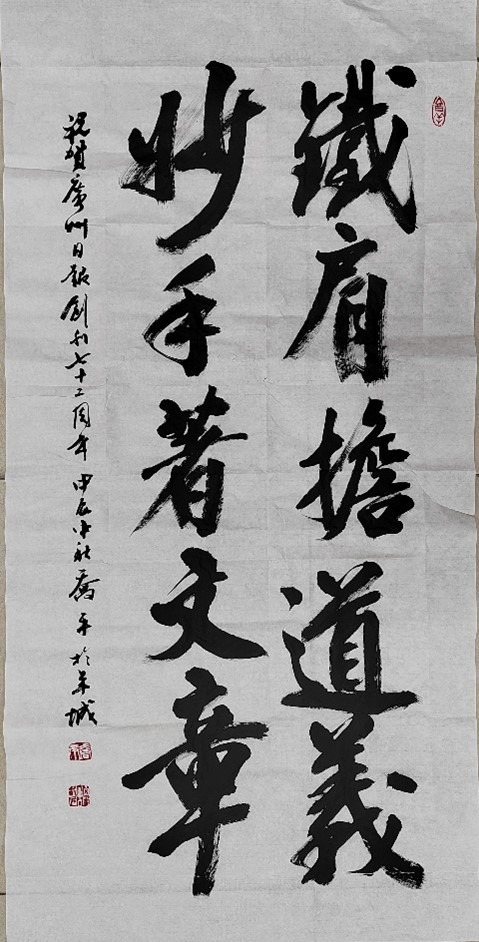 鐵肩擔道義
妙手著文章
祝賀廣州日報創刊七十二周年 甲辰小秋喬平於羊城